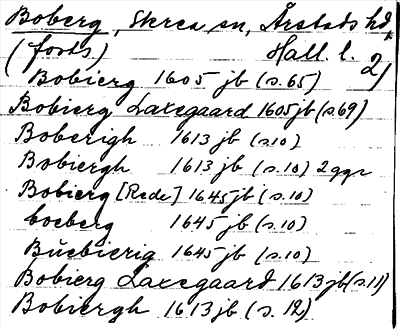 Boberg, Skrea sn, Årstads hd,
(forts.) Hall. l. 2)
Bobierg 1605 jb (s.65)
Bobierg Laxegaard 1605 jb (s.69)
Boberigh 1613 jb (s.10)
Bobiergh 1613 jb (s.10) 2ggr
Bobierg [Rede] 1645 jb (s.10)
boeberg 1645 jb (s.10)
Buebierig 1645 jb (s.10)
Bobierg Laxegaard 1613 jb (s.11)
Bobiergh 1613 jb (s.12)